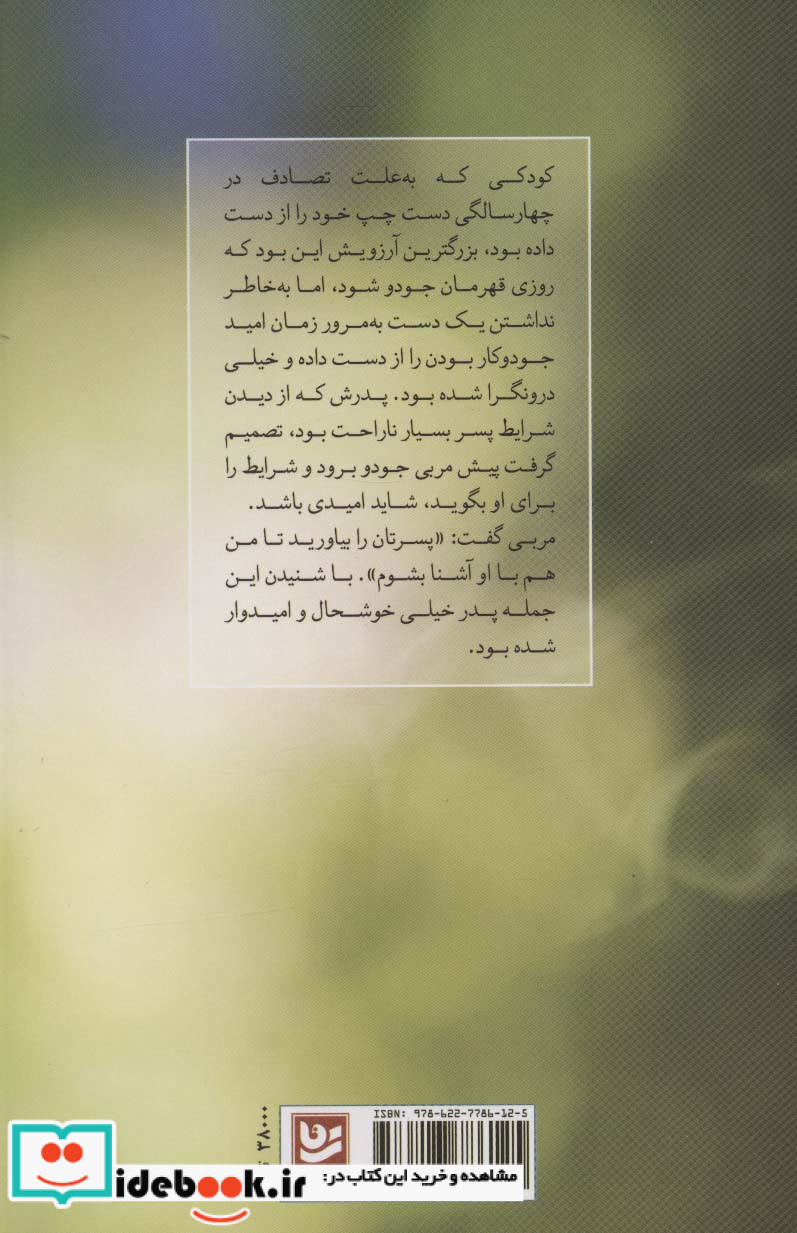 کودکی که به‌علت تصادف در
چهارسالگی دست چپ خود را از دست
داده بود، بزرگترین آرزویش این بود که
روزی قهرمان جودو شود، اما به‌خاطر
نداشتن یک دست به‌مرور زمان امید
جودوکار بودن را از دست داده و خیلی
درونگرا شده بود. پدرش که از دیدن
شرایط پسر بسیار ناراحت بود، تصمیم
گرفت پیش مربی جودو برود و شرایط را
برای او بگوید، شاید امیدی باشد.
مربی گفت: «پسرتان را بیاورید تا من
هم با او آشنا بشوم». با شنیدن این
جمله پدر خیلی خوشحال و امیدوار
شده بود.
۳۸۰۰۰
ISBN: 978-622-7786-12-5
مشاهده و خرید این کتاب در:
idebook.ir